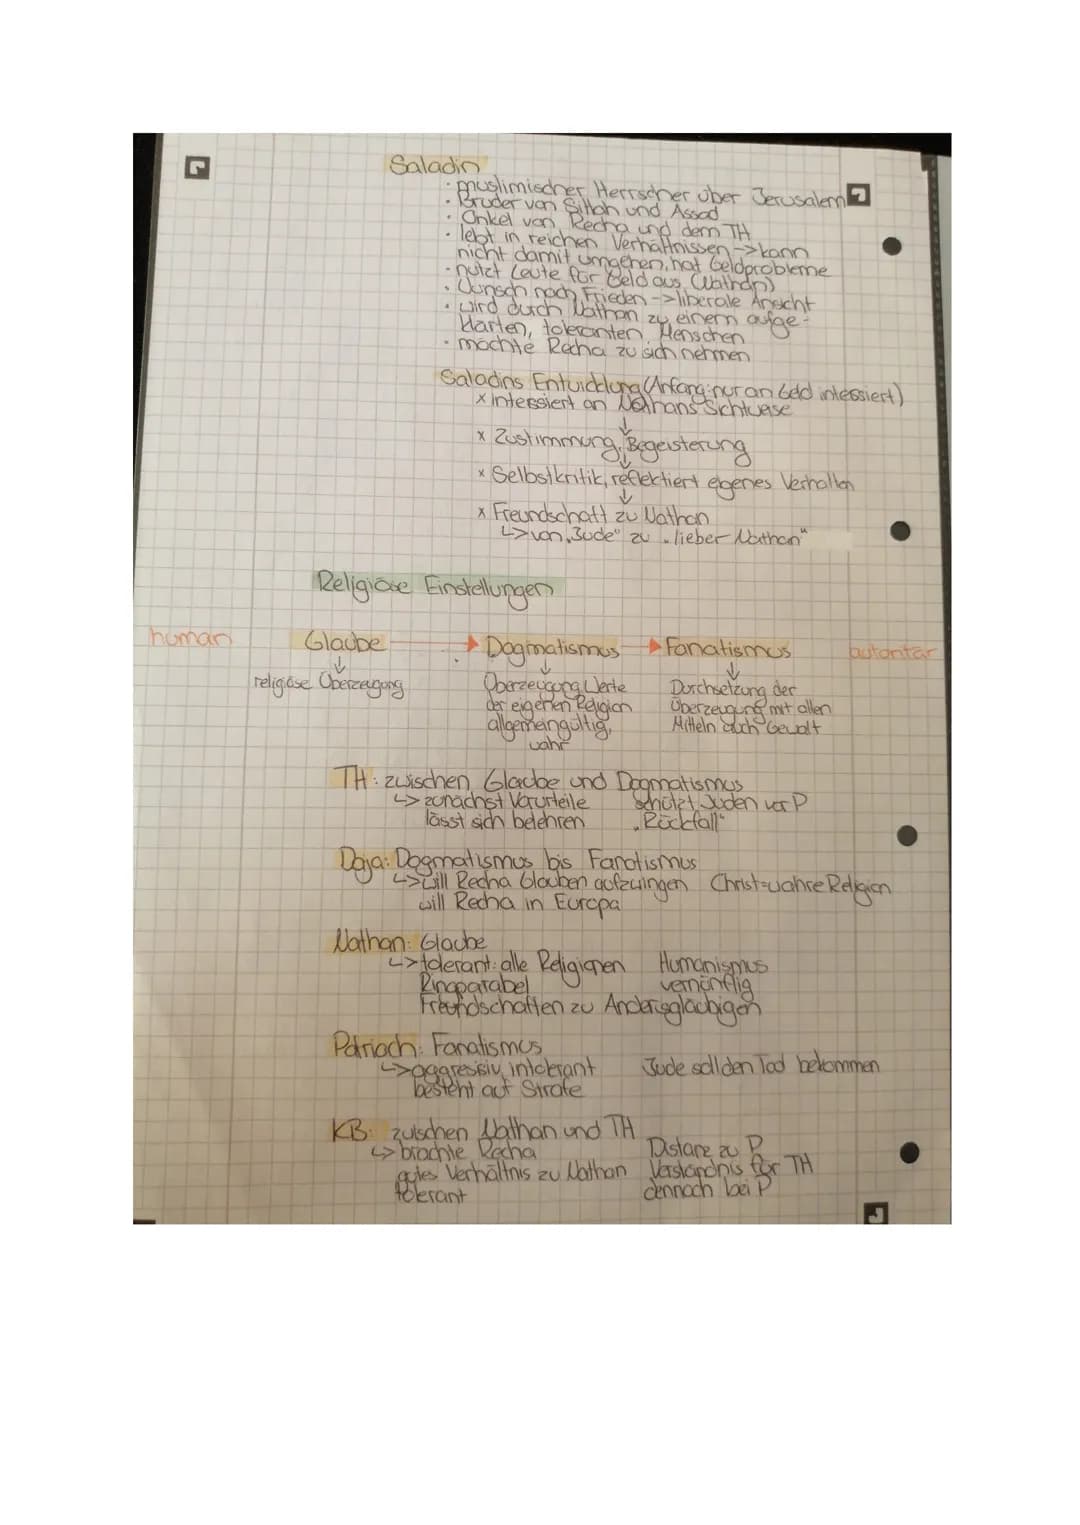 Saladin
· muslimischer Herrscher über Jerusalem
· Bruder von Sittah und Assad
· Onkel von Recha und dem TH
· lebt in reichen Verhältnissen -> kann
nicht damit umgehen, hat Geldprobleme
· nutzt Leute für Geld aus (Nathan)
· Wunsch nach Frieden -> liberale Ansicht
· wird durch Nathan zu einem aufge-
klärten, toleranten Menschen
· möchte Recha zu sich nehmen
Saladins Entwicklung (Anfang: nur an Geld intessiert)
x Intessiert an Nathans Sichtweise
↓
x Zustimmung, Begeisterung
↓
x Selbstkritik, reflektiert eigenes Verhalten
↓
x Freundschaft zu Nathan
↳ von „Jude" zu „lieber Nathan"
Religiöse Einstellungen
human Glaube → Dogmatismus → Fanatismus autoritär
↓ ↓ ↓
religiöse Überzeugung Überzeugung Werte Durchsetzung der
der eigenen Religion Überzeugung mit allen
allgemeingültig, Mitteln auch Gewalt
wahr
TH: zwischen Glaube und Dogmatismus
↳ zunächst Vorurteile schützt Juden vor P
lässt sich belehren „Rückfall"
Daja: Dogmatismus bis Fanatismus
↳ will Recha Glauben aufzwingen Christ=wahre Religion
will Recha in Europa
Nathan: Glaube
↳ tolerant: alle Religionen Humanismus
Ringparabel vernünftig
Freundschaften zu Andersgläubigen
Patriach: Fanatismus
↳ aggresisiv, intolerant Jude soll den Tod bekommen
besteht auf Strafe
KB: zwischen Nathan und TH
↳ brachte Recha Distanz zu P
gutes Verhältnis zu Nathan Verständnis für TH
tolerant dennoch bei P